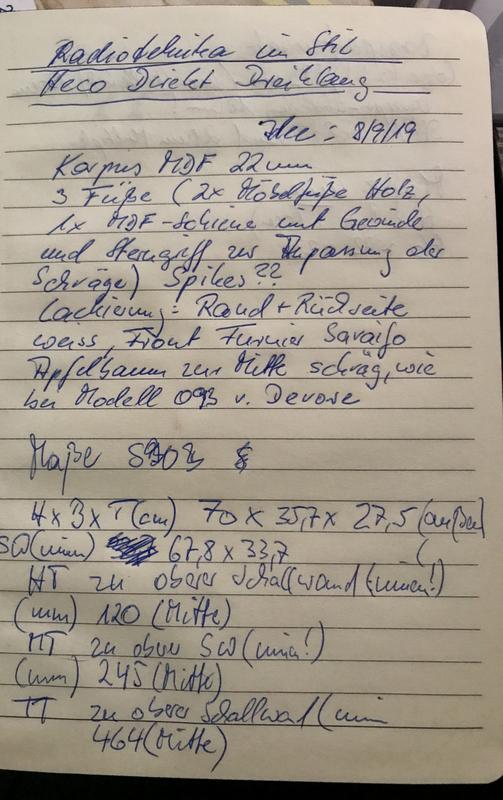 Radiotehnika im Stil
Heco Direkt Dreiklang
Idee: 8/9/19
Korpus MDF 22mm
3 Füße (2x Möbelfüße Holz,
1x MDF-Schiene mit Gewinde
und Sterngriff zur Anpassung der
Schräge) Spikes??
Lackierung: Rand + Rückseite
weiss, Front Furnier
Apfelbaum zur Mitte schräg, wie
bei Modell v. Devore
Maße S90
H x B x T (cm) 70 x 35,7 x 27,5 (außen)
SW (innen) 67,8 x 33,7 (
HT zu oberer Schallwand (innen!)
(mm) 120 (Mitte)
MT zu oberer SW (innen!)
(mm) 245 (Mitte)
TT zu oberer Schallwand (inn
464 (Mitte)